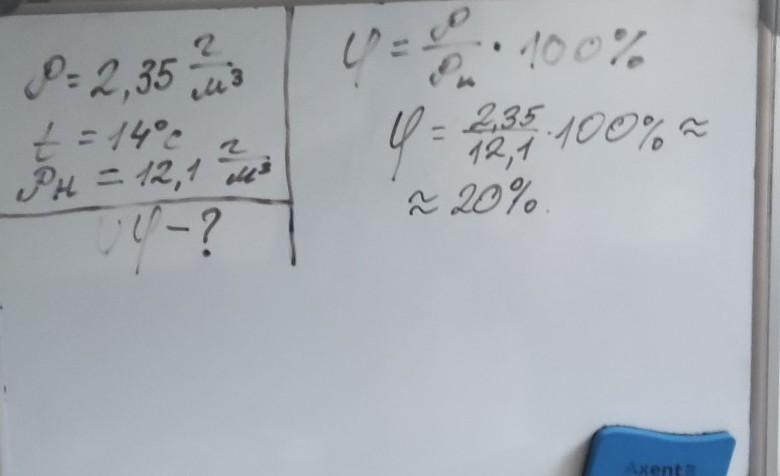 ρ = 2,35 г/м³
t = 14°C
ρн = 12,1 г/м³
φ - ?
φ = ρ/ρн · 100%
φ = 2,35/12,1 · 100% ≈
≈ 20%.
Axent